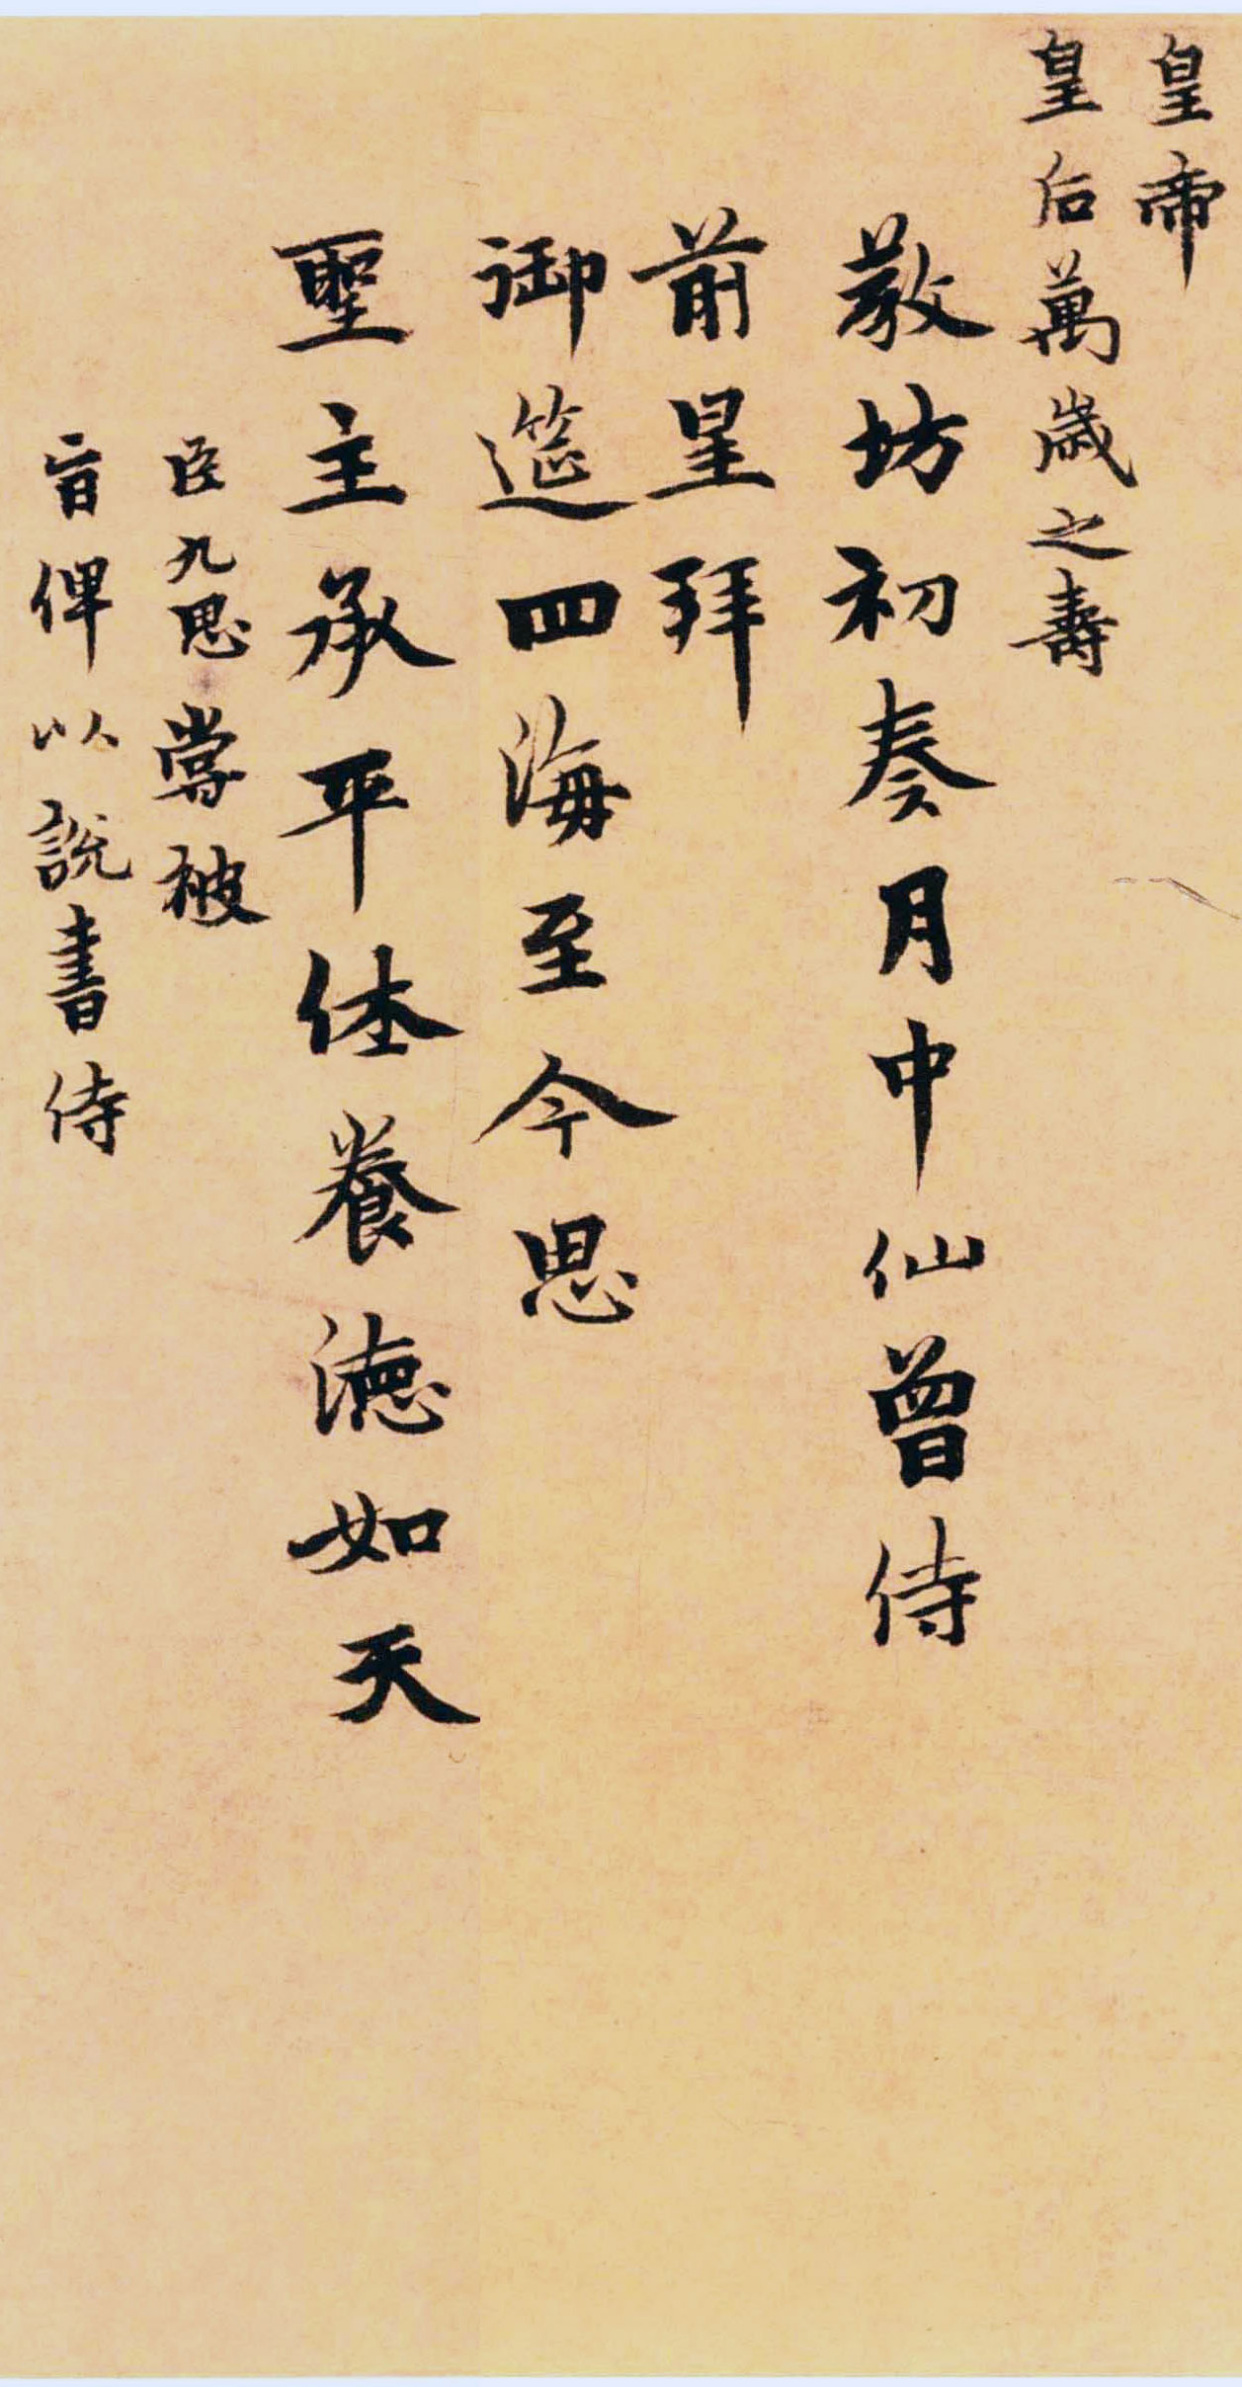 皇帝
皇后萬歲之壽
教坊初奏月中仙曾侍
前皇拜
御筵四海至今思
聖主承平休養德如天
臣九思嘗被
旨俾以說書侍